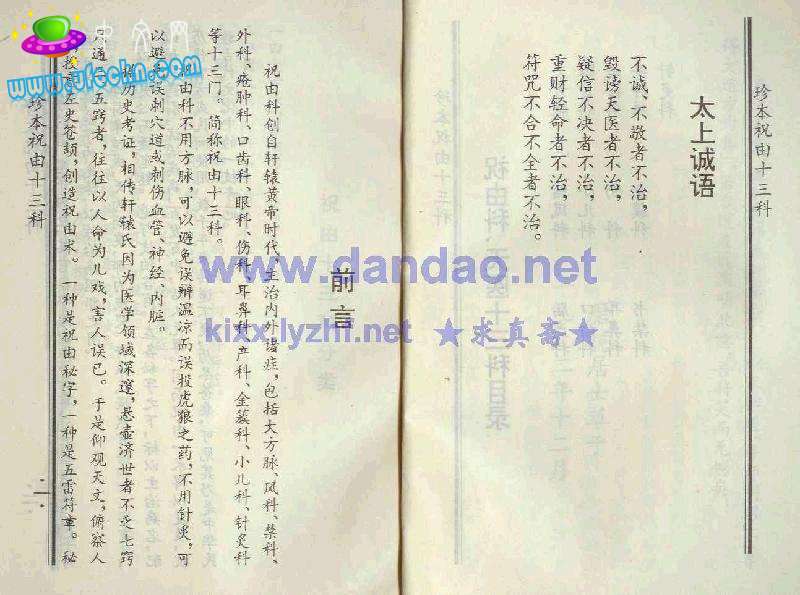 珍本祝由十三科
太上诫语
不诚、不敬者不治，
毁谤天医者不治，
疑信不决者不治，
重财轻命者不治，
符咒不合不全者不治。
前言
祝由科创自轩辕黄帝时代，主治内外诸症，包括大方脉、风科、禁科、
外科、疮肿科、口齿科、眼科、伤科、耳鼻科、产科、金簇科、小儿科、针灸科
等十三门。简称祝由十三科。
祝由科不用方脉，可以避免误辨温凉而误投虎狼之药，不用针灸，可
以避免误刺穴道或刺伤血管、神经、内脏。
据历史考证，相传轩辕氏因为医学领域深邃，悬壶济世者不乏七窍
只通二五窍者，往往以人命为儿戏，害人误己。于是仰观天文，俯察人
授意左史苍颉，创造祝由术。一种是祝由秘字，一种是五雷符章。秘
珍本祝由十三科
一
中文网
www.ufocn.com
www.dandao.net
kixx.lyzhi.net ★求真斋★